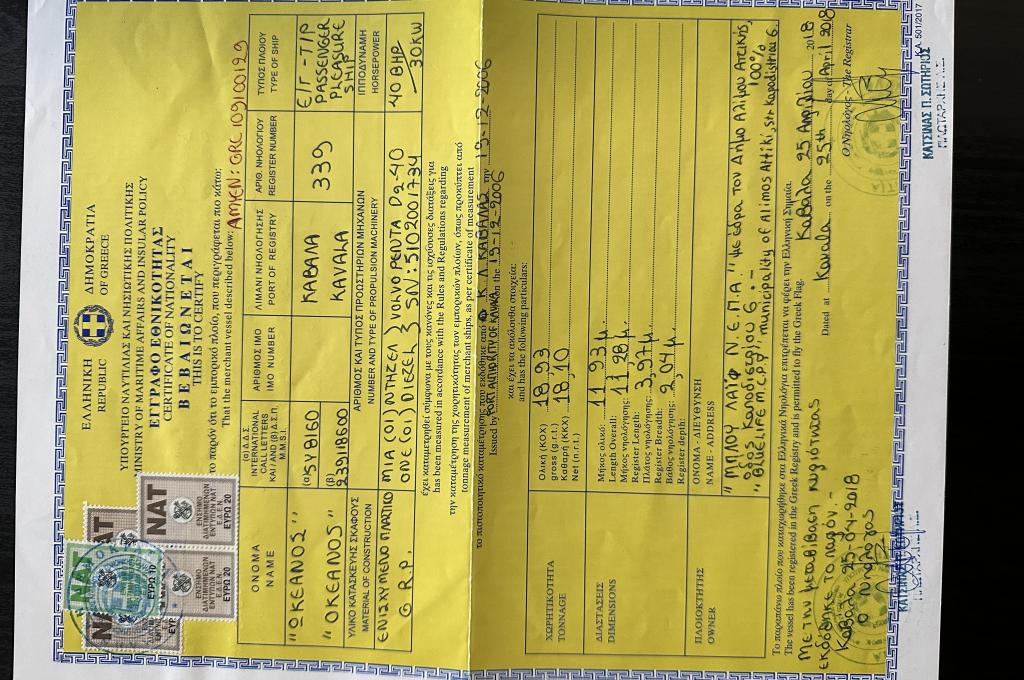 ΕΛΛΗΝΙΚΗ ΔΗΜΟΚΡΑΤΙΑ
REPUBLIC OF GREECE
ΥΠΟΥΡΓΕΙΟ ΝΑΥΤΙΛΙΑΣ ΚΑΙ ΝΗΣΙΩΤΙΚΗΣ ΠΟΛΙΤΙΚΗΣ
MINISTRY OF MARITIME AFFAIRS AND INSULAR POLICY
ΕΓΓΡΑΦΟ ΕΘΝΙΚΟΤΗΤΑΣ
CERTIFICATE OF NATIONALITY
ΒΕΒΑΙΩΝΕΤΑΙ
THIS IS TO CERTIFY
το παρόν ότι το εμπορικό πλοίο, που περιγράφεται πιο κάτω:
That the merchant vessel described below:
ΑΜΥΕΝ: GRC 109100129
ΝΑΤ
ΕΝΣΗΜΟ
ΔΙΑΤΙΜΗΜΕΝΩΝ
ΕΝΤΥΠΩΝ ΝΑΤ
Ε.Δ.Ε.Ν.
ΕΥΡΩ 20
ΝΑΤ
ΕΥΡΩ 10
ΕΝΣΗΜΟ
ΔΙΑΤΙΜΗΜΕΝΩΝ
ΕΝΤΥΠΩΝ ΝΑΤ
Ε.Δ.Ε.Ν.
ΕΥΡΩ 20
ΟΝΟΜΑ
NAME
(α) Δ.Δ.Σ.
INTERNATIONAL
CALL LETTERS
ΚΑΙ / AND (β) Δ.Σ.Π.
M.M.S.I.
ΑΡΙΘΜΟΣ ΙΜΟ
IMO NUMBER
ΛΙΜΑΝΙ ΝΗΟΛΟΓΗΣΗΣ
PORT OF REGISTRY
ΑΡΙΘ. ΝΗΟΛΟΓΙΟΥ
REGISTER NUMBER
ΤΥΠΟΣ ΠΛΟΙΟΥ
TYPE OF SHIP
"ΩΚΕΑΝΟΣ"
"OKEANOS"
(α) SY8160
(β) 239118600
ΚΑΒΑΛΑ
KAVALA
339
Ε/Γ - Τ/Ρ
PASSENGER
PLEASURE
SHIP
ΥΛΙΚΟ ΚΑΤΑΣΚΕΥΗΣ ΣΚΑΦΟΥΣ
MATERIAL OF CONSTRUCTION
ΑΡΙΘΜΟΣ ΚΑΙ ΤΥΠΟΣ ΠΡΟΩΣΤΗΡΙΩΝ ΜΗΧΑΝΩΝ
NUMBER AND TYPE OF PROPULSION MACHINERY
ΙΠΠΟΔΥΝΑΜΗ
HORSEPOWER
ΕΝΙΣΧΥΜΕΝΟ ΠΛΑΣΤΙΚΟ
G.R.P.
ΜΙΑ (01) ΝΤΗΖΕΛ
ONE (01) DIESEL
VOLVO PENTA D2-40
S/N: 5102001734
40 BHP
30 KW
έχει καταμετρηθεί σύμφωνα με τους κανόνες και τις ισχύουσες διατάξεις για
has been measured in accordance with the Rules and Regulations regarding
την καταμέτρηση της χωρητικότητας των εμπορικών πλοίων, όπως προκύπτει από
tonnage measurement of merchant ships, as per certificate of measurement
το πιστοποιητικό καταμέτρησης που εκδόθηκε από Φ Κ Λ ΚΑΒΑΛΑΣ την 19-12-2006
Issued by PORT AUTHORITY OF KAVALA on the 19-12-2006
και έχει τα ακόλουθα στοιχεία:
and has the following particulars:
ΧΩΡΗΤΙΚΟΤΗΤΑ
TONNAGE
Ολική (ΚΟΧ)
gross (g.r.t.) 18,93
Καθαρή (ΚΚΧ)
Net (n.r.t.) 18,10
ΔΙΑΣΤΑΣΕΙΣ
DIMENSIONS
Μήκος ολικό:
Length Overall: 11,93 μ.
Μήκος νηολόγησης:
Register Length: 11,98 μ.
Πλάτος νηολόγησης:
Register Breadth: 3,97 μ.
Βάθος νηολόγησης:
Register depth: 2,04 μ.
ΠΛΟΙΟΚΤΗΤΗΣ
OWNER
ΟΝΟΜΑ - ΔΙΕΥΘΥΝΣΗ
NAME - ADDRESS
"ΜΠΛΟΥ ΛΑΪΦ Ν.Ε.Π.Α" με έδρα τον Δήμο Αλίμου Αττικής,
οδός Καποδιστρίου 6. - 100%
"BLUE LIFE M.C.P.Y", municipality of Alimos Attiki, str Kapodistriou 6.
Το παραπάνω πλοίο που καταχωρήθηκε στα Ελληνικά Νηολόγια επιτρέπεται να φέρει την Ελληνική Σημαία.
The vessel has been registered in the Greek Registry and is permitted to fly the Greek Flag.
Με την μεταβίβαση πλοιοκτησίας
εκδόθηκε το παρόν. -
Καβάλα 25-04-2018
Ο Νηολόγος
Καβάλα 25 Απριλίου 2018
Dated at Kavala on the 25th day of April 2018
Ο Νηολόγος - The Registrar
ΚΑΤΣΙΝΑΣ Π. ΣΩΤΗΡΙΟΣ
ΠΛΩΤΑΡΧΗΣ Λ.Σ.
501/2017